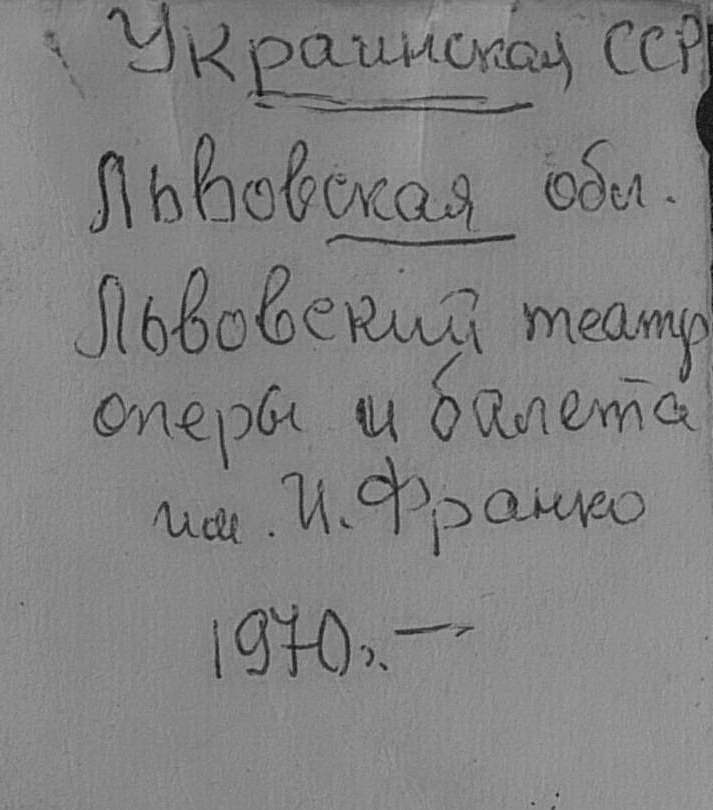 Украинская ССР
Львовская обл.
Львовский театр
оперы и балета
им. И. Франко
1970г. —